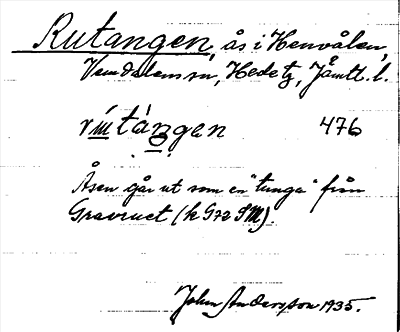 Rutangen, ås i Henvålen,
Vemdalens sn, Hede tg, Jämtl. l.
476
Åsen går ut som en "tunga" från
Gravruet (h 972 SM).
John Andersson 1935.